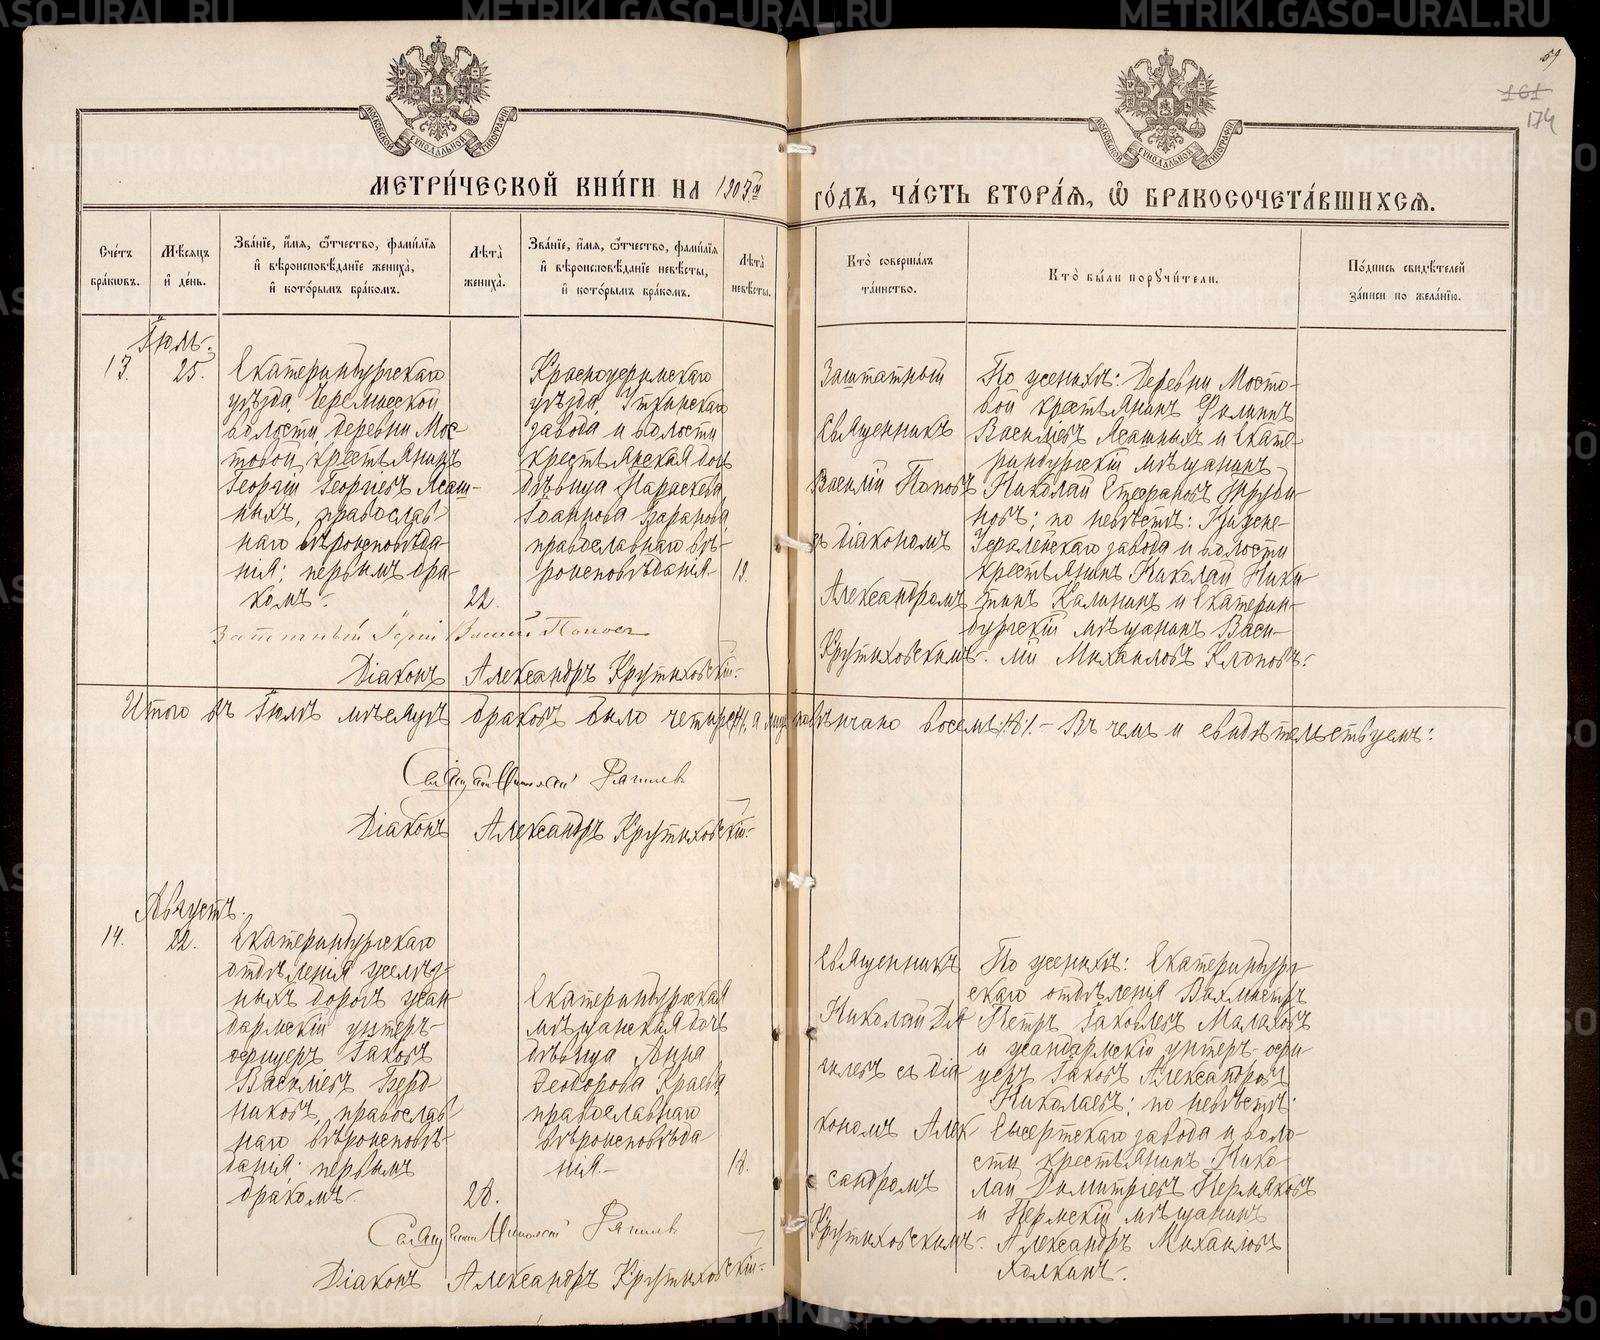 59
161
174
МОСКОВСКОЙ СѴНОДАЛЬНОЙ ТИПОГРАФІИ
МОСКОВСКОЙ СѴНОДАЛЬНОЙ ТИПОГРАФІИ
МЕТРИ́ЧЕСКОЙ КНИ́ГИ НА 1903й
ГО́ДЪ, ЧА́СТЬ ВТОРА́Я, Ѽ БРАКОСОЧЕТА́ВШИХСЯ.
Сче́тъ бра́кѡвъ.
Мѣ́сяцъ и҆ де́нь.
Зва́нїе, и҆́мя, ѻ҆́тчество, фами́лїя и҆ вѣроисповѣ́данїе жениха̀, и҆ кото́рымъ бра́комъ.
Лѣта̀ жениха̀.
Зва́нїе, и҆́мя, ѻ҆́тчество, фами́лїя и҆ вѣроисповѣ́данїе невѣ́сты, и҆ кото́рымъ бра́комъ.
Лѣта̀ невѣ́сты.
Кто̀ соверша́лъ та́инство.
Кто̀ бы́ли порꙋчи́тели.
По́дпись свидѣ́телей за́писи по жела́нїю.
Іюль.
13.
25.
Екатеринбургскаго
уѣзда, Черемисской
волости, деревни Мос
товой, крестьянинъ
Георгій Георгіевъ Ясаш-
ныхъ, православ-
наго вѣроисповѣда-
нія; первымъ бра-
комъ.
22.
Красноуфимскаго
уѣзда, Уткинскаго
завода и волости
крестьянская дочь
дѣвица Параскева
Іоаннова Баранова,
православнаго вѣ-
роисповѣданія
19.
Заштатный
Священникъ
Василій Поповъ
съ діакономъ
Александромъ
Крутиховскимъ.
По женихѣ: Деревни Мосто-
вой крестьянинъ Филиппъ
Васильевъ Ясашныхъ и Екате-
ринбургскій мѣщанинъ
Николай Стефановъ Трубинъ
новъ; по невѣстѣ: Нижне-
Исфалейскаго завода и волости
крестьянинъ Николай Ники-
тинъ Калининъ и Екатерин-
бургскій мѣщанинъ Васи-
лій Михаиловъ Клоповъ.
Заштатный Іерей Василій Поповъ
Діаконъ Александръ Крутиховскій.
Итого въ Іюлѣ мѣсяцѣ браковъ было четыре /4/, а лицъ повѣнчано восемь /8/. - Въ чемъ и свидѣтельствуемъ:
Священникъ Николай Дягилевъ
Діаконъ Александръ Крутиховскій.
Августъ.
14.
22.
Екатеринбургскаго
отдѣленія желѣз-
ныхъ дорогъ жан
дармскій унтеръ-
офицеръ Іаковъ
Васильевъ Берд
никовъ, православ-
наго вѣроисповѣ-
данія; первымъ
бракомъ.
28.
Екатеринбургская
мѣщанская дочь
дѣвица Анна
Ѳеодорова Краева,
православнаго
вѣроисповѣда
нія
18.
Священникъ
Николай Дя
гилевъ съ діа
кономъ Алек
сандромъ
Крутиховскимъ.
По женихѣ: Екатеринбург
скаго отдѣленія Вахмистръ
Петръ Іаковлевъ Малаховъ
и жандармскій унтеръ-офи-
церъ Іаковъ Александровъ
Николаевъ; по невѣстѣ:
Сысертскаго завода и воло-
сти крестьянинъ Нико-
лай Димитріевъ Пермяковъ
и Пермскій мѣщанинъ
Александръ Михаиловъ
Холкинъ.
Священникъ Николай Дягилевъ
Діаконъ Александръ Крутиховскій.